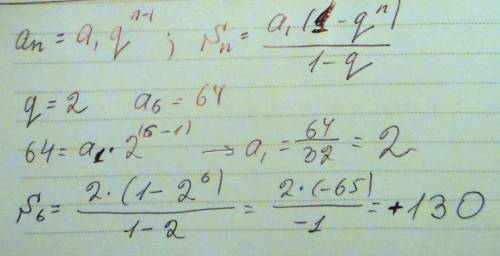 aₙ = a₁ qⁿ⁻¹ ; Sₙ = a₁(1 - qⁿ) / 1 - q
q = 2 a₆ = 64
64 = a₁ · 2⁽⁶⁻¹⁾ → a₁ = 64/32 = 2
S₆ = 2·(1 - 2⁶) / 1 - 2 = 2·(-65) / -1 = +130